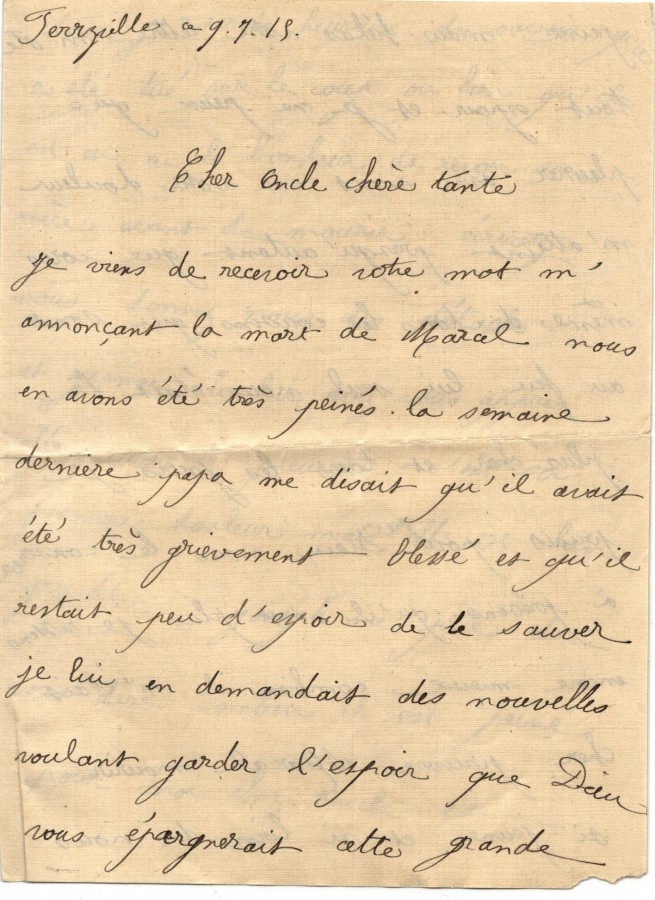 Terrzille ce 9.7.15.
Cher Oncle chère tante
je viens de recevoir votre mot m'
annonçant la mort de Marcel nous
en avons été très peinés. la semaine
dernière papa me disait qu'il avait
été très grièvement blessé et qu'il
restait peu d'espoir de le sauver
je lui en demandait des nouvelles
voulant garder l'espoir que Dieu
vous épargnerait cette grande